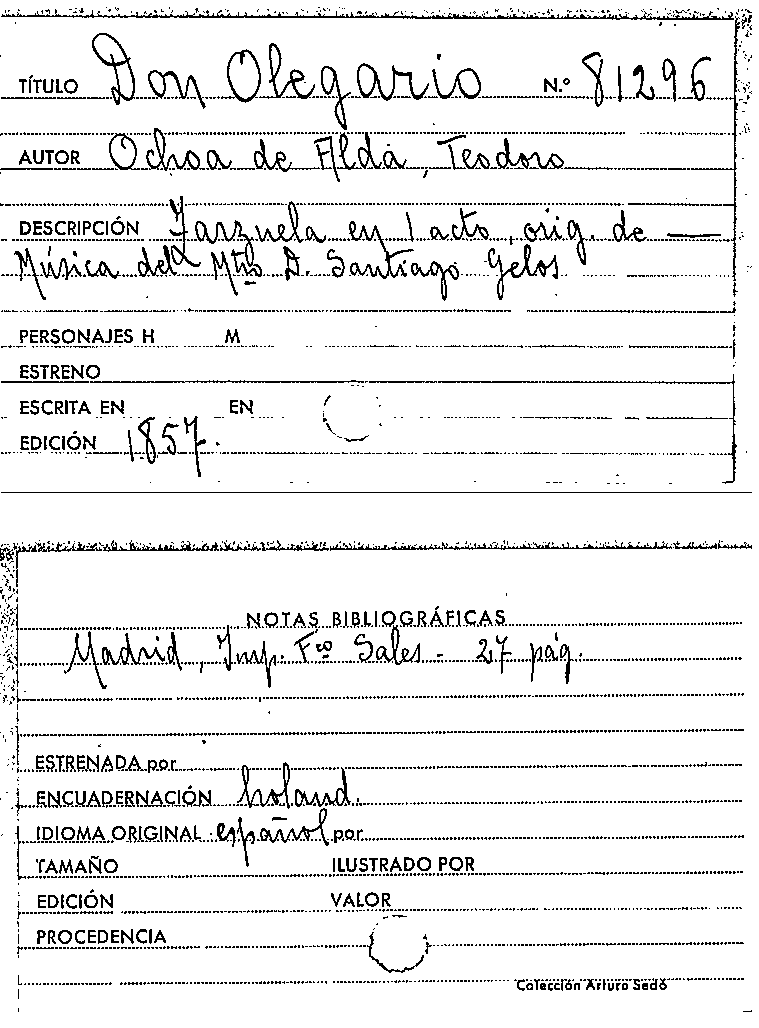 TÍTULO Don Olegario N.º 81296
AUTOR Ochoa de Alda, Teodoro
DESCRIPCIÓN Zarzuela en 1 acto, orig. de —
Música del Mtro D. Santiago Gelos
PERSONAJES H M
ESTRENO
ESCRITA EN EN
EDICIÓN 1857.
NOTAS BIBLIOGRÁFICAS
Madrid, Imp. Fco Sales - 27 pág.
ESTRENADA por
ENCUADERNACIÓN holand.
IDIOMA ORIGINAL español por
TAMAÑO ILUSTRADO POR
EDICIÓN VALOR
PROCEDENCIA
Colección Arturo Sedó